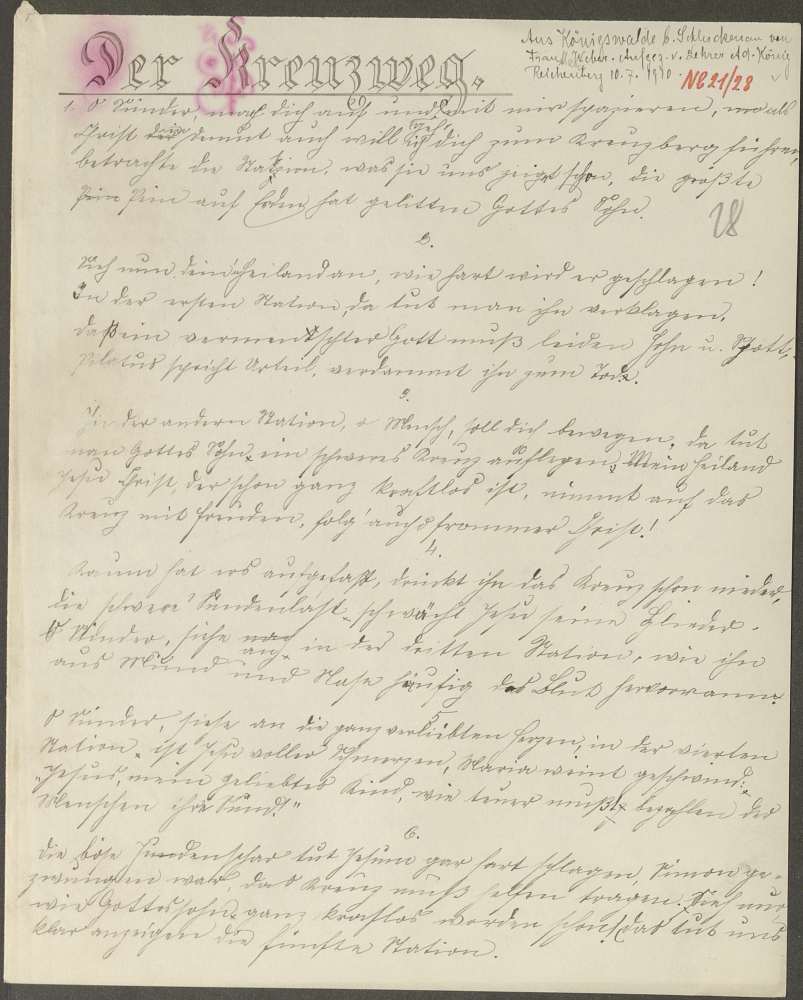 Aus Königswalde b. Schluckenau von
Der Kreuzweg.
Franz Weber. Aufgez. v. Lehrer Ad. König
Reichenberg 10.7.1910.
NG 21/28
1. O Sünder, mach dich auf und mit mir spazieren, weil
Christ dein auch will ich dich zum Kreuzberg führen,
betrachte die Station, was sie uns zeiget schon, die größte
Pein auf Erden hat gelitten Gottes Sohn.
28
2.
Sieh nun dein Heiland an, wie hart wird er geschlagen!
In der ersten Station, da tut man ihn verklagen.
Daß ein vermenschter Gott muß leiden Hohn u. Spott,
Pilatus spricht Urteil, verdammt ihn zum Tode.
3.
In der andern Station, o Mensch, soll dich bewegen, da tut
man Gottes Sohn ein schweres Kreuz auflegen; Mein Heiland
Jesu Christ, der schon ganz kraftlos ist, nimmt auf das
Kreuz mit Freuden, folg' auch o frommer Christ!
4.
Kaum hat ers aufgefaßt, drückt ihn das Kreuz schon nieder,
die schwere Sündenlast schwächt Jesu seine Glieder.
O Sünder, siehe an in der dritten Station, wie ihm
aus Mund und Nase häufig das Blut hervorrann.
5
O Sünder, siehe an die ganz verliebten Herzen, in der vierten
Station ist Jesu voller Schmerzen, Maria weint geschwind:
"Jesus, mein geliebtes Kind, wie teuer mußt bezahlen der
Menschen ihre Sünd!"
6.
Die böse Judenschar tut Jesum gar hart schlagen, Simon ge-
zwungen war, das Kreuz muß helfen tragen. Sieh nur
wie Gottessohn ganz kraftlos worden schon, das tut uns
klar anzeigen die fünfte Station.